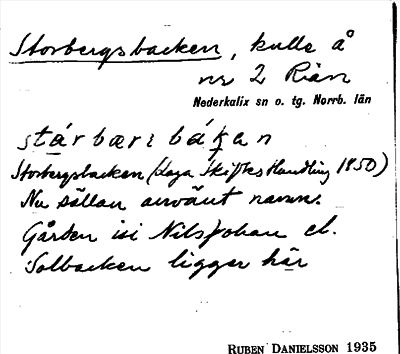 Storbergsbacken, kulle å
nr 2 Riän
Nederkalix sn o. tg. Norrb. län
stárbærs bákan
Storbergsbacken (Laga Skiftes Handling 1850)
Nu sällan använt namn.
Gården isi Nilsjohan el.
Solbacken ligger här
RUBEN DANIELSSON 1935